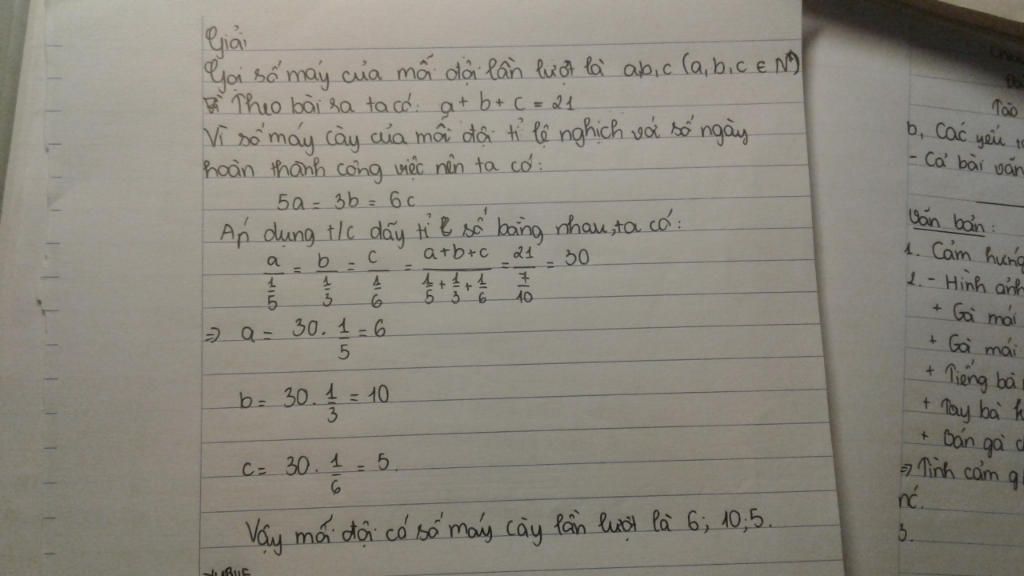 Giải
Gọi số máy của mỗi đội lần lượt là a,b,c (a,b,c ∈ N*)
Theo bài ra ta có: a + b + c = 21
Vì số máy cày của mỗi đội tỉ lệ nghịch với số ngày
hoàn thành công việc nên ta có:
5a = 3b = 6c
Áp dụng t/c dãy tỉ số bằng nhau, ta có:
a/(1/5) = b/(1/3) = c/(1/6) = (a+b+c)/(1/5 + 1/3 + 1/6) = 21/(7/10) = 30
=> a = 30 . 1/5 = 6
b = 30 . 1/3 = 10
c = 30 . 1/6 = 5.
Vậy mỗi đội có số máy cày lần lượt là 6; 10; 5.
Tào
b, Các yếu
- Cả bài văn
Văn bản:
1. Cảm hứng
2. - Hình ảnh
+ Gà mái
+ Gà mái
+ Tiếng bà
+ Tay bà
+ Bán gà
=> Tình cảm
nc.
3.